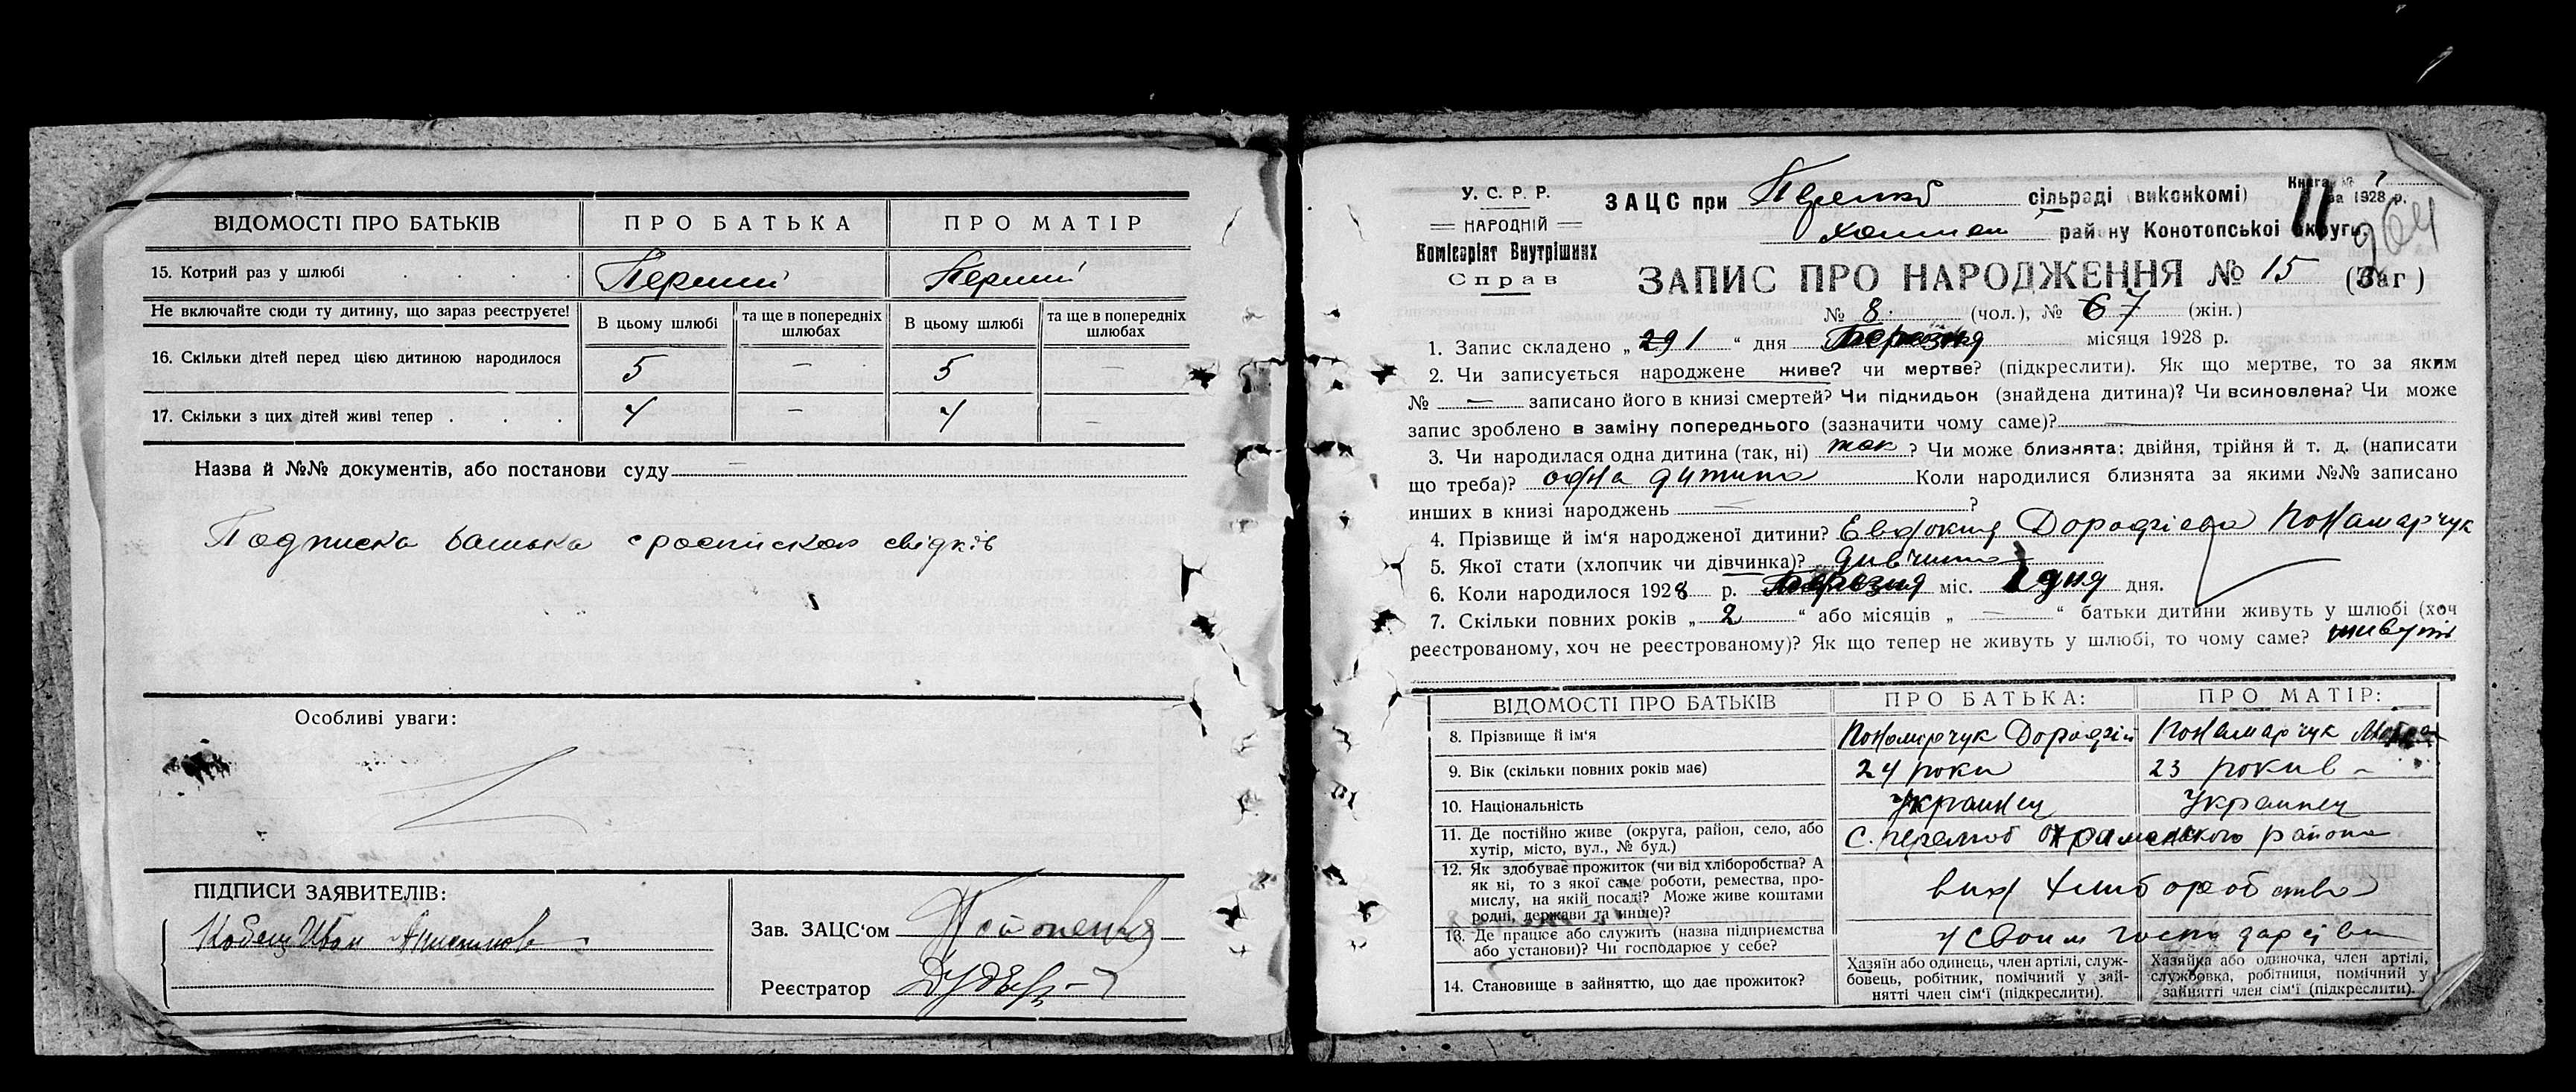 ВІДОМОСТІ ПРО БАТЬКІВ ПРО БАТЬКА ПРО МАТІР
15. Котрий раз у шлюбі . . . . Перший Перший
Не включайте сюди ту дитину, що зараз реєструєте! В цьому шлюбі та ще в попередніх шлюбах В цьому шлюбі та ще в попередніх шлюбах
16. Скільки дітей перед цією дитиною народилося 5 — 5 —
17. Скільки з цих дітей живі тепер . . . 4 — 4 —
Назва й №№ документів, або постанови суду —
Подписка батька свідків
Особливі уваги:
ПІДПИСИ ЗАЯВИТЕЛІВ:
Кобец Иван
Зав. ЗАЦС'ом
Реєстратор
У. С. Р. Р.
НАРОДНІЙ
Комісаріят Внутрішних
Справ
Книга № 1
за 1928 р.
11
964
ЗАЦС при сільраді виконкомі)
району Конотопської округи.
ЗАПИС ПРО НАРОДЖЕННЯ № 15 (Заг)
№ 8 (чол.), № 67 (жін.)
1. Запис складено „ 291 “ дня Березня місяця 1928 р.
2. Чи записується народжене живе? чи мертве? (підкреслити). Як що мертве, то за яким
№ — записано його в книзі смертей? Чи підкидьок (знайдена дитина)? Чи всиновлена? Чи може
запис зроблено в заміну попереднього (зазначити чому саме)? —
3. Чи народилася одна дитина (так, ні) так ? Чи може близнята: двійня, трійня й т. д. (написати
що треба)? одна дитина Коли народилися близнята за якими №№ записано
инших в книзі народжень — ?
4. Прізвище й ім'я народженої дитини? Евдокия Дорофіева Понамарчук
5. Якої стати (хлопчик чи дівчинка)? дивчина
6. Коли народилося 1928 р. Березня міс. 1 дня дня.
7. Скільки повних років „ 2 “ або місяців „ — “ батьки дитини живуть у шлюбі (хоч
реєстрованому, хоч не реєстрованому)? Як що тепер не живуть у шлюбі, то чому саме? живуть
ВІДОМОСТІ ПРО БАТЬКІВ ПРО БАТЬКА: ПРО МАТІР:
8. Прізвище й ім'я Понамарчук Дорофій Понамарчук
9. Вік (скільки повних років має) 24 роки 23 рокив
10. Національність Украинец Украинец
11. Де постійно живе (округа, район, село, або
хутір, місто, вул., № буд.) С. района
12. Як здобуває прожиток (чи від хліборобства? А
як ні, то з якої саме роботи, ремества, про-
мислу, на якій посаді? Може живе коштами
родні, держави та инше)? вид хлиборобства
13. Де працює або служить (назва підприємства
або установи)? Чи господарює у себе? у своим господарсіви
14. Становище в зайняттю, що дає прожиток?
Хазяїн або одинець, член артілі, служ-
бовець, робітник, помічний у зай-
нятті член сім'ї (підкреслити).
Хазяйка або одиночка, член артілі,
службовка, робітниця, помічний у
зайнятті член сім'ї (підкреслити).